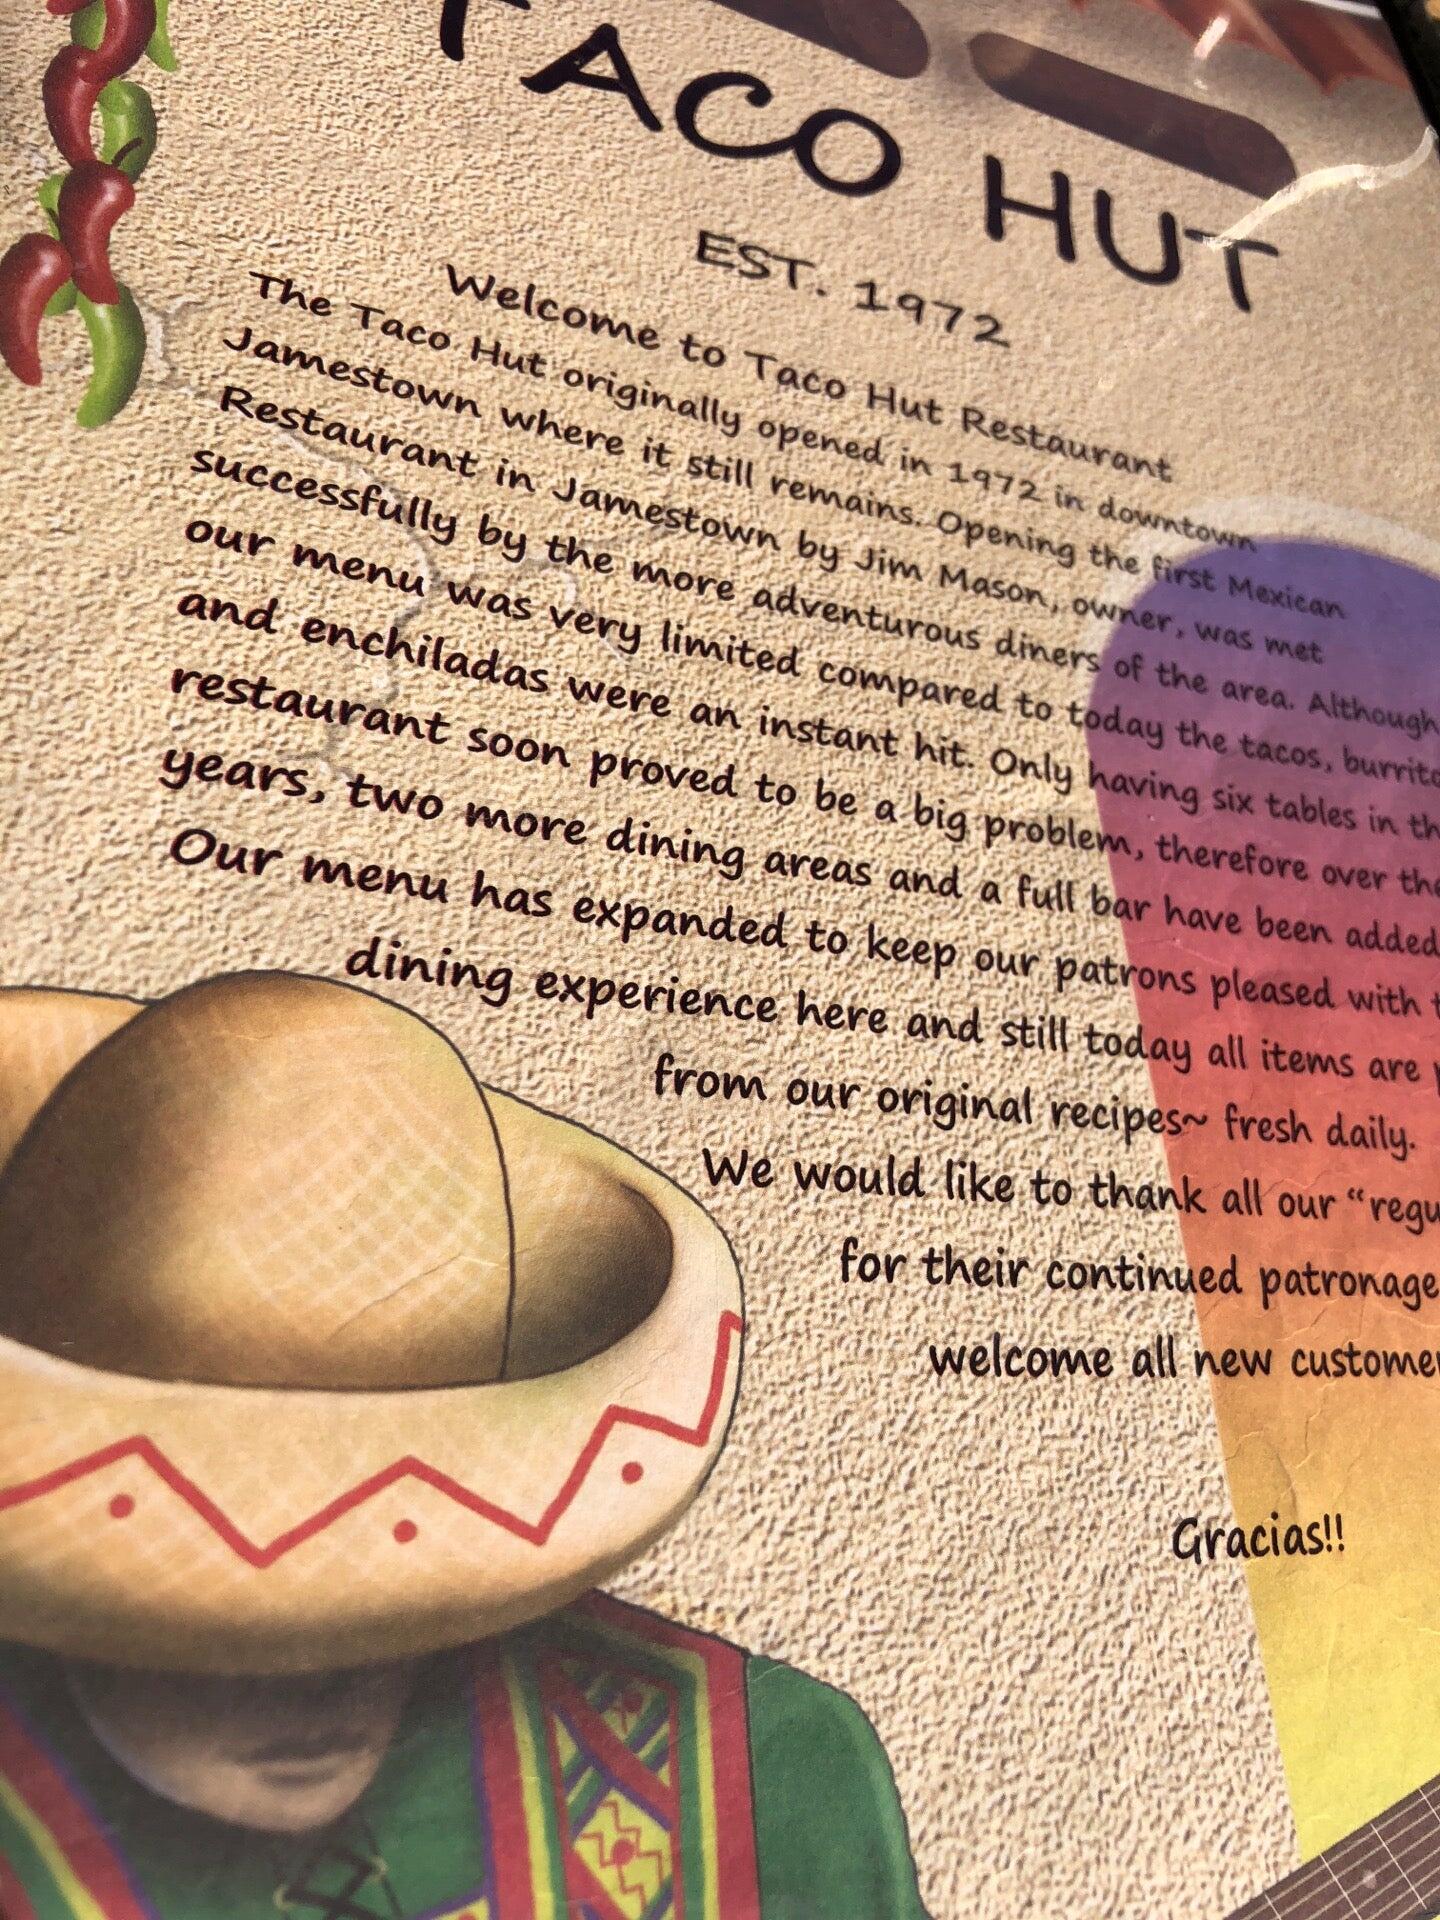 TACO HUT
EST. 1972
Welcome to Taco Hut Restaurant
The Taco Hut originally opened in 1972 in downtown
Jamestown where it still remains. Opening the first Mexican
Restaurant in Jamestown by Jim Mason, owner, was met
successfully by the more adventurous diners of the area. Although
our menu was very limited compared to today the tacos,
and enchiladas were an instant hit. Only having six tables in
restaurant soon proved to be a big problem, therefore over
years, two more dining areas and a full bar have been added
Our menu has expanded to keep our patrons pleased with
dining experience here and still today all items are
from our original recipes~ fresh daily.
We would like to thank all our
for their continued patronage
welcome all new
Gracias!!